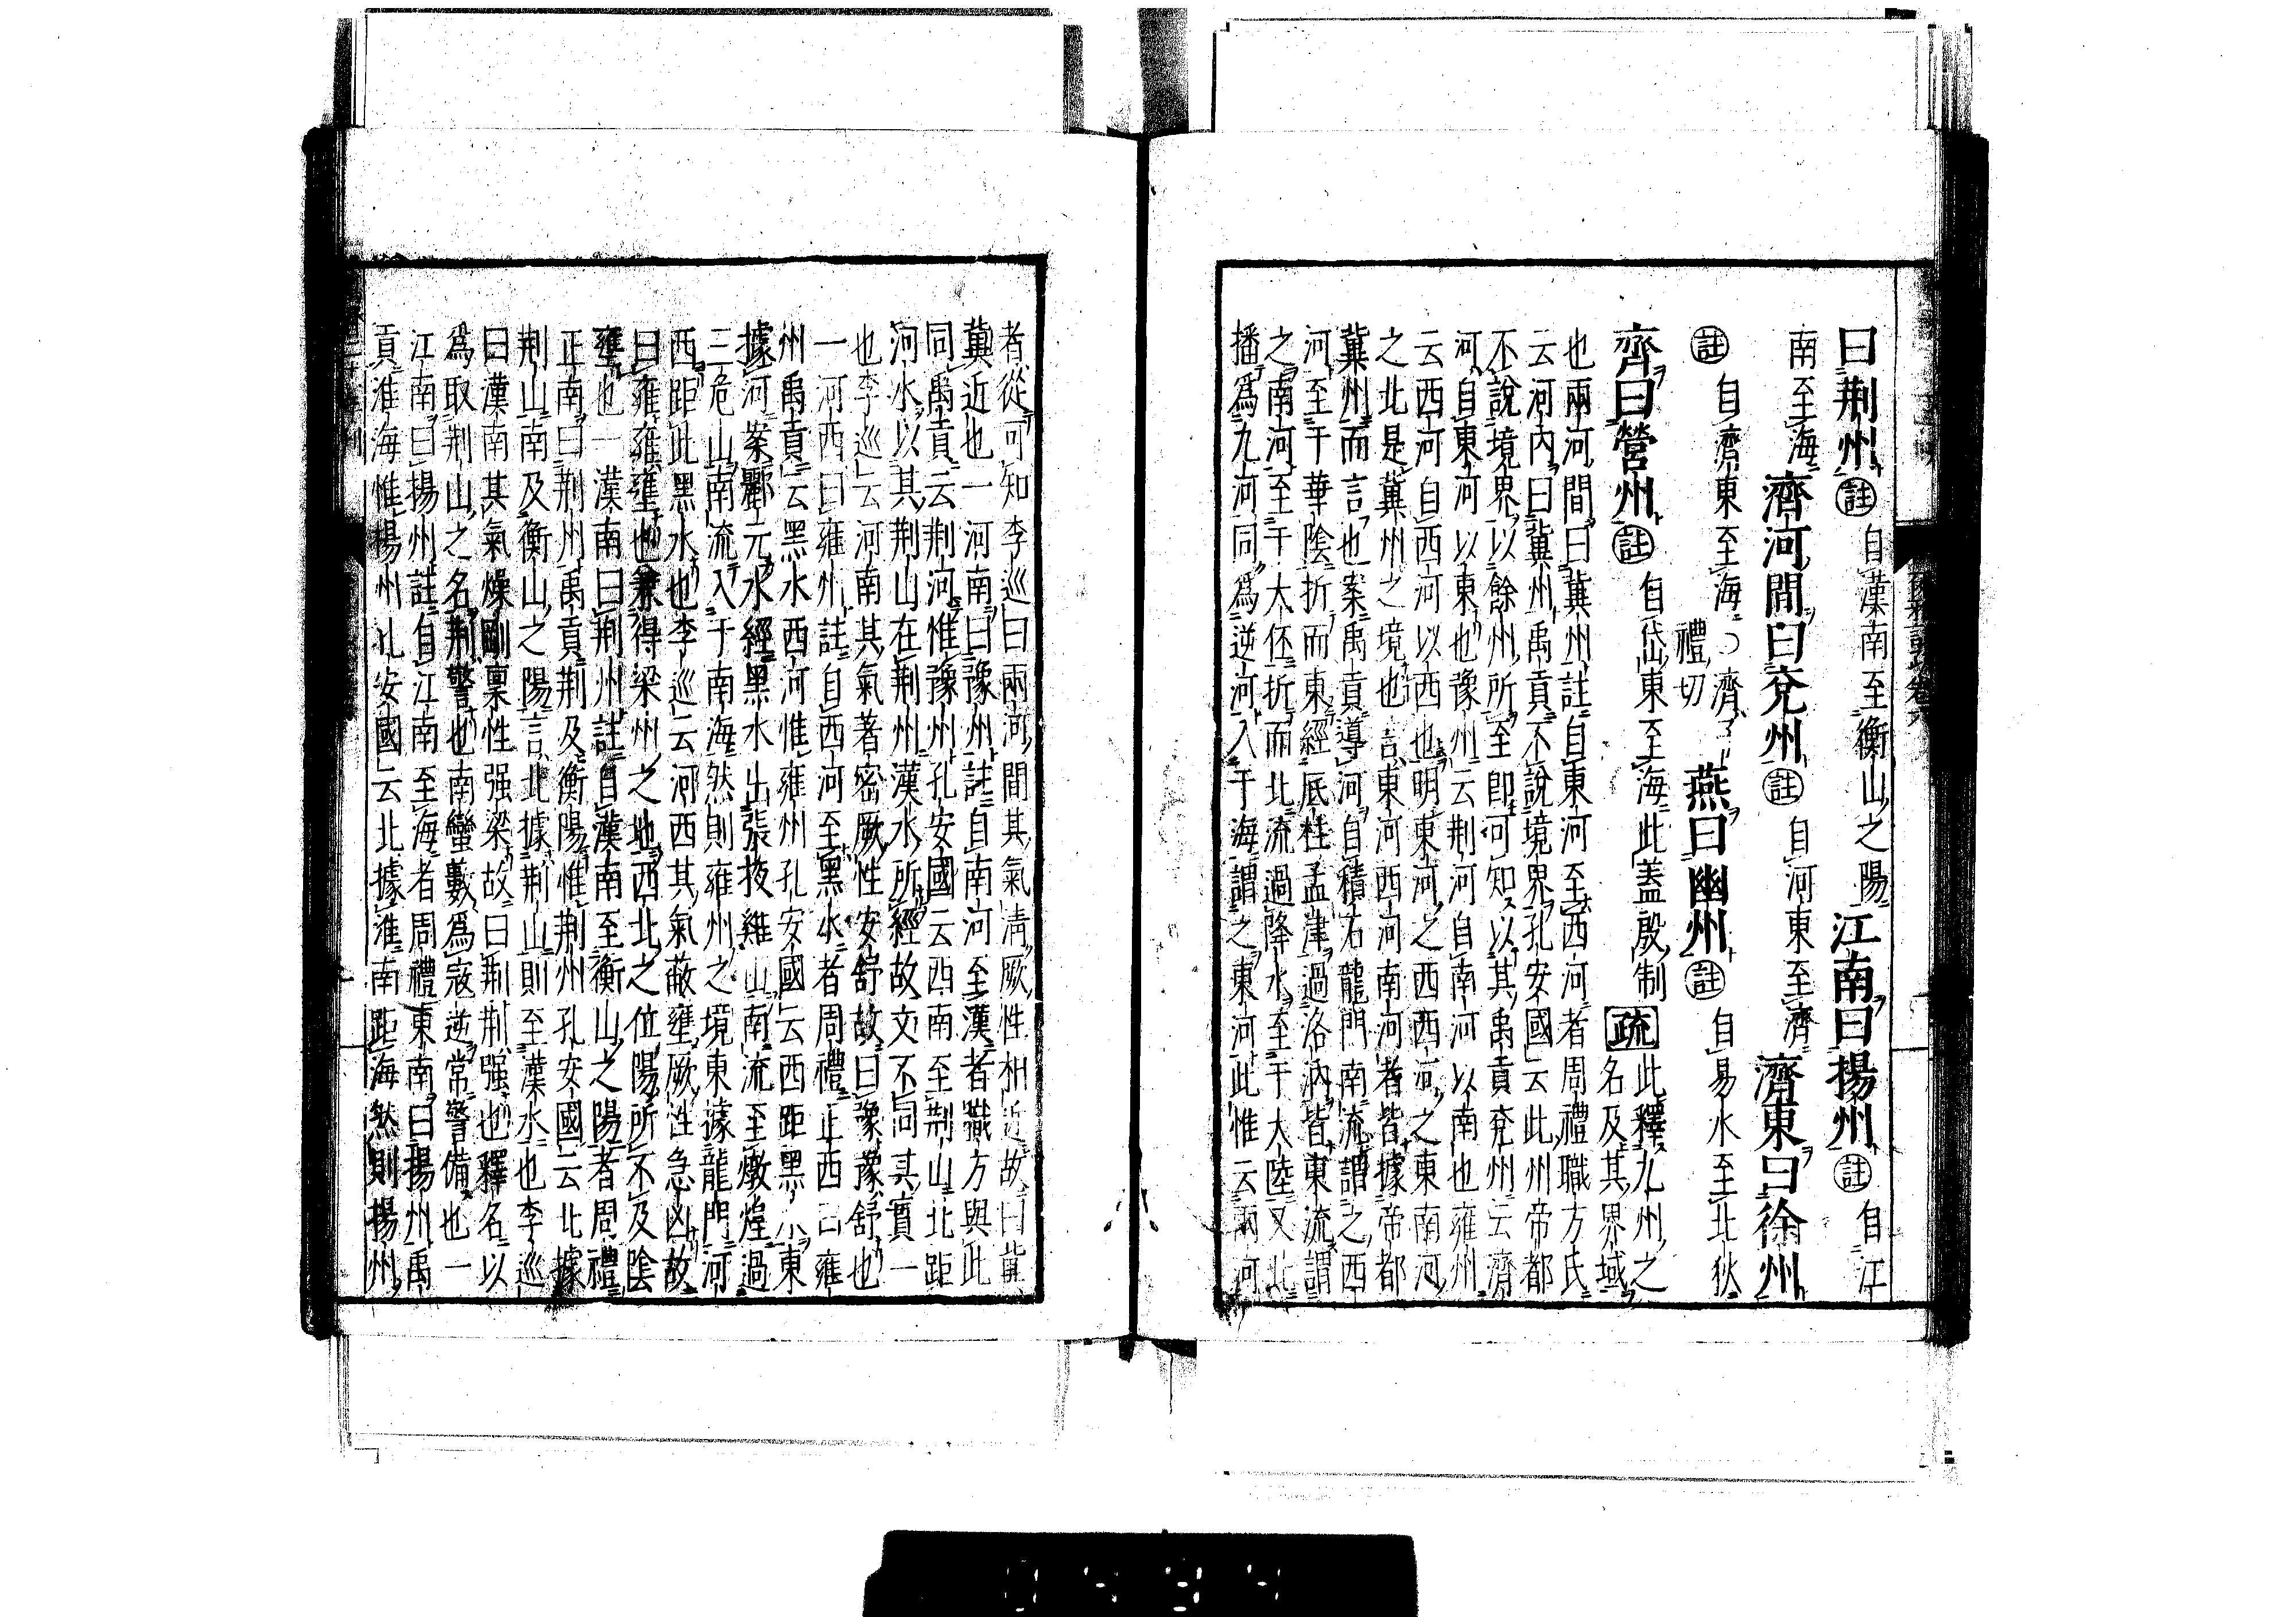 曰荆州註自漢南至衡山之陽江南曰揚州註自江
南至海濟河間曰兗州註自河東至濟濟東曰徐州
註自濟東至海○濟子禮切燕曰幽州註自易水至北狄
齊曰營州註自岱東至海此蓋殷制疏此釋九州之名及其界域
也兩河間曰冀州註自東河至西河者周禮職方氏
云河內曰冀州禹貢不說境界孔安國云此州帝都
不說境界以餘州所至即可知以其禹貢兗州云濟
河自東河以東也豫州云荆河自南河以南也雍州
云西河自西河以西也明東河之西西河之東南河
之北是冀州之境也言東河西河南河者皆據帝都
冀州而言也案禹貢導河自積石龍門南流謂之西
河至于華陰折而東經底柱孟津過洛汭皆東流謂
之南河至于大伾折而北流過降水至于大陸又北
播爲九河同爲逆河入于海謂之東河此惟云兩河
者從可知李巡曰兩河間其氣清厥性相近故曰冀
冀近也一河南曰豫州註自南河至漢者職方與此
同禹貢云荆河惟豫州孔安國云西南至荆山北距
河水以其荆山在荆州漢水所經故文不同其實一
也李巡云河南其氣著密厥性安舒故曰豫豫舒也
一河西曰雍州註自西河至黑水者周禮正西曰雍
州禹貢云黑水西河惟雍州孔安國云西距黑水東
據河案酈元水經黑水出張掖雞山南流至燉煌過
三危山南流入于南海然則雍州之境東據龍門河
西距此黑水也李巡云河西其氣蔽壅厥性急凶故
曰雍雍壅也兼得梁州之地西北之位陽所不及陰
壅也一漢南曰荆州註自漢南至衡山之陽者周禮
正南曰荆州禹貢荆及衡陽惟荆州孔安國云北據
荆山南及衡山之陽言北據荆山則至漢水也李巡
曰漢南其氣燥剛稟性强梁故曰荆荆强也釋名以
爲取荆山之名荆警也南蠻數爲寇逆常警備也一
江南曰揚州註自江南至海者周禮東南曰揚州禹
貢淮海惟揚州孔安國云北據淮南距海然則揚州